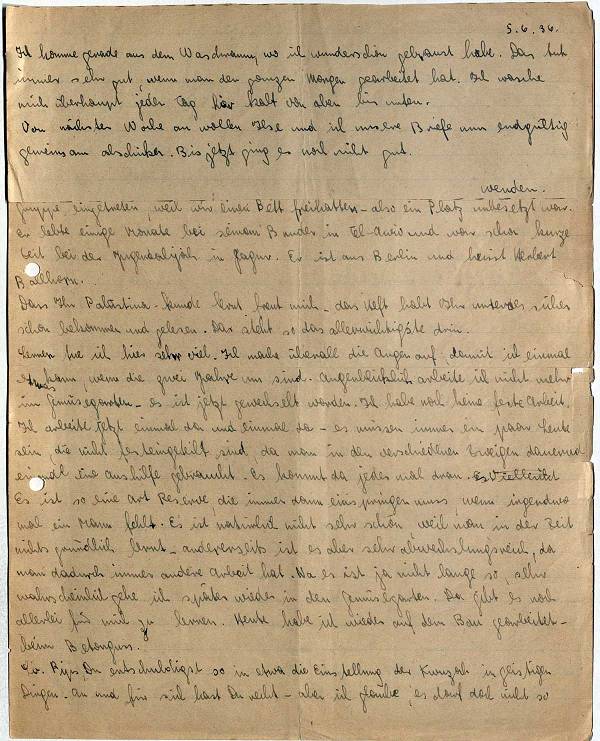 5.6.36.
Ich komme gerade aus dem Waschraum, wo ich wunderschön gebraust habe. Das tut
immer sehr gut, wenn man den ganzen Morgen gearbeitet hat. Ich wasche
mich überhaupt jeden Tag hier kalt von oben bis unten.
Von nächster Woche an wollen Ilse und ich unsere Briefe nun endgültig
gemeinsam abschicken. Bis jetzt ging es noch nicht gut.
wenden.
gruppe eingetreten, weil wir einen Bett frei hatten - also ein Platz unbesetzt war.
Er lebte einige Monate bei seinem Bruder in Tel-Aviv und war schon kurze
Zeit bei der Jugendalijah in Jagur. Er ist aus Berlin und heisst Herbert
Dass Ihr Palästina-kunde lernt freut mich - das Heft habt Ihr unterdes sicher
schon bekommen und gelesen. Da steht so das allerwichtigste drin.
Lernen tue ich hier sehr viel. Ich mache überall die Augen auf, damit ich einmal
etwas kann, wenn die zwei Jahre um sind. Augenblicklich arbeite ich nicht mehr
im Gemüsegarten - es ist jetzt gewechselt worden. Ich habe noch keine feste Arbeit.
Ich arbeite jetzt einmal da und einmal da - es müssen immer ein paar Leute
sein, die nicht fest eingeteilt sind, da man in den verschiedenen Zweigen dauernd
mal eine aushilfe gebraucht. Es kommt da jedes mal dran. Vielleicht
Es ist so eine Art Reserve, die immer dann einspringen muss, wenn irgendwo
mal ein Mann fehlt. Es ist natürlich nicht sehr schön weil man in der Zeit
nichts gründlich lernt - andererseits ist es aber sehr abwechslungsreich, da
man dadurch immer andere Arbeit hat. Na es ist ja nicht lange so, sehr
wahrscheinlich gehe ich später wieder in den Gemüsegarten. Da gibt es noch
allerlei für mich zu lernen. Heute habe ich wieder auf dem Bau gearbeitet -
beim Betonguss.
Lb. Du entschuldigst so in etwa die Einstellung der Kwuzah in geistigen
Dingen. An und für sich hast Du recht - aber ich glaube, es darf doch nicht so